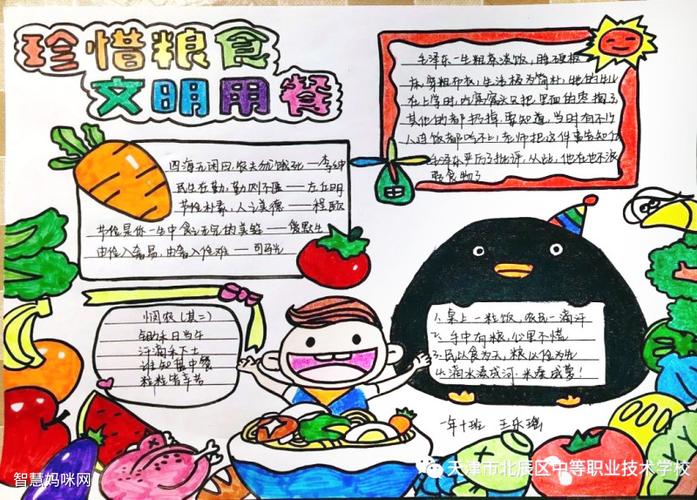 珍惜粮食
文明用餐
毛泽东一生粗茶淡饭，睡硬板
床，穿粗布衣，生活极为简朴，他的
在上学时
其他的都扔掉，要知道，当时有不少
人连饭都吃不上，老师把这件事告知
毛泽东受历了批评，从此，他在也不浪
费食物了
四海无闲田，农夫犹饿死——李绅
民生在勤，勤则不匮——左丘明
节俭朴素，人之美德——程
节俭是你一生中食
由俭入奢易，由奢入俭难——司马光
悯农（其二）
锄禾日当午
汗滴禾下土
谁知盘中餐
粒粒皆辛苦
1、桌上一粒饭，农民一滴汗
2、手中有粮，心里不慌
3、民以食为天，粮以俭为先
4、滴水流成河，米凑成萝！
一年十班 王乐瑶
智慧妈咪网
天津市北辰区中等职业技术学校